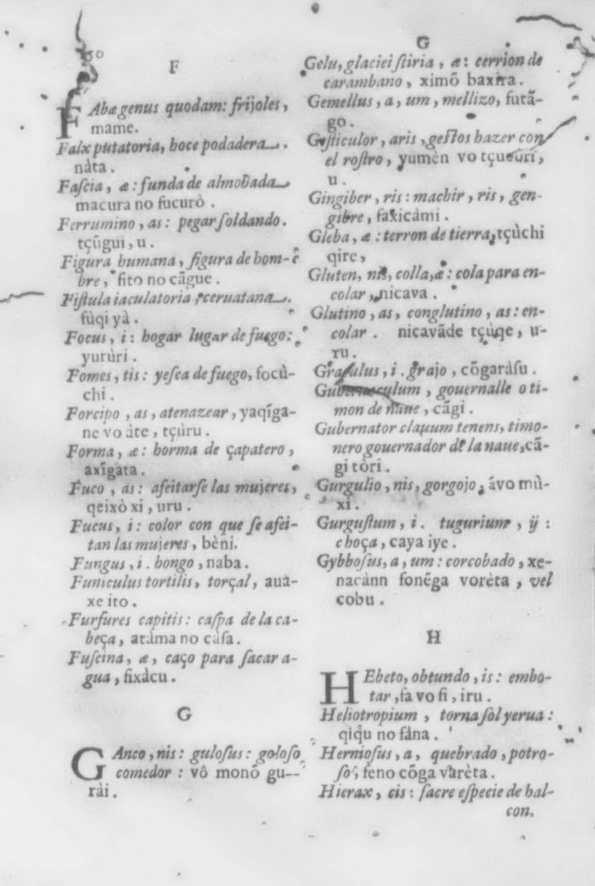 F
FAbæ genus quodam: frijoles,
mame.
Falx putatoria, hoce podadera.
nàta.
Faſcia, æ: funda de almohada
macura no fucurò.
Ferrumino, as: pegar ſoldando.
tçũgui, u.
Figura humana, figura de hom-
bre, fito no cãgue.
Fiſtula iaculatoria, ceruatana.
fùqi yà.
Focus, i: hogar lugar de fuego:
yurùri.
Fomes, tis: yeſca de fuego, focù-
chi.
Forcipo, as, atenazear, yaqĩga-
ne vo àte, tçùru.
Forma, æ: horma de çapatero,
axĩgata.
Fuco, as: afeitarſe las mujeres,
qeixò xi, uru.
Fucus, i: color con que ſe afei-
tan las mujeres, bèni.
Fungus, i. hongo, naba.
Funiculus tortilis, torçal, auà-
xe ito.
Furfures capitis: caſpa de la ca-
beça, atàma no càſa.
Fuſcina, æ, caço para ſacar a-
gua, fixàcu.
G
GAnco, nis: guloſus: goloſo
comedor: vô monõ gu--
rài.
G
Gelu, glaciei ſtiria, æ: cerrion de
carambano, ximõ baxira.
Gemellus, a, um, mellizo, futã-
go.
Geſticulor, aris, geſtos hazer con
el roſtro, yumèn vo tçucùri,
u.
Gingiber, ris: machir, ris, gen-
gibre, faxicàmi.
Gleba, æ: terron de tierra, tçùchi
qire,
Gluten, nis, colla, æ: cola para en-
colar, nicava.
Glutino, as, conglutino, as: en-
colar. nicavãde tçùqe, u-
ru.
Graculus, i. grajo, cõgaràſu.
Gubernaculum, gouernalle o ti-
mon de naue, cãgi.
Gubernator clauum tenens, timo-
nero gouernador de la naue, cã-
gi tòri.
Gurgulio, nis, gorgojo, àvo mù-
xi.
Gurguſtum, i. tugurium, ij:
choça, caya iye.
Gybboſus, a, um: corcobado, xe-
nacànn fonẽga vorèta, vel
cobu.
H
HEbeto, obtundo, is: embo-
tar, fa vo fi, iru.
Heliotropium, tornaſol yerua:
qiqu no fàna.
Hernioſus, a, quebrado, potro-
ſo, feno cõga varèta.
Hierax, cis: ſacre eſpecie de hal-
con.